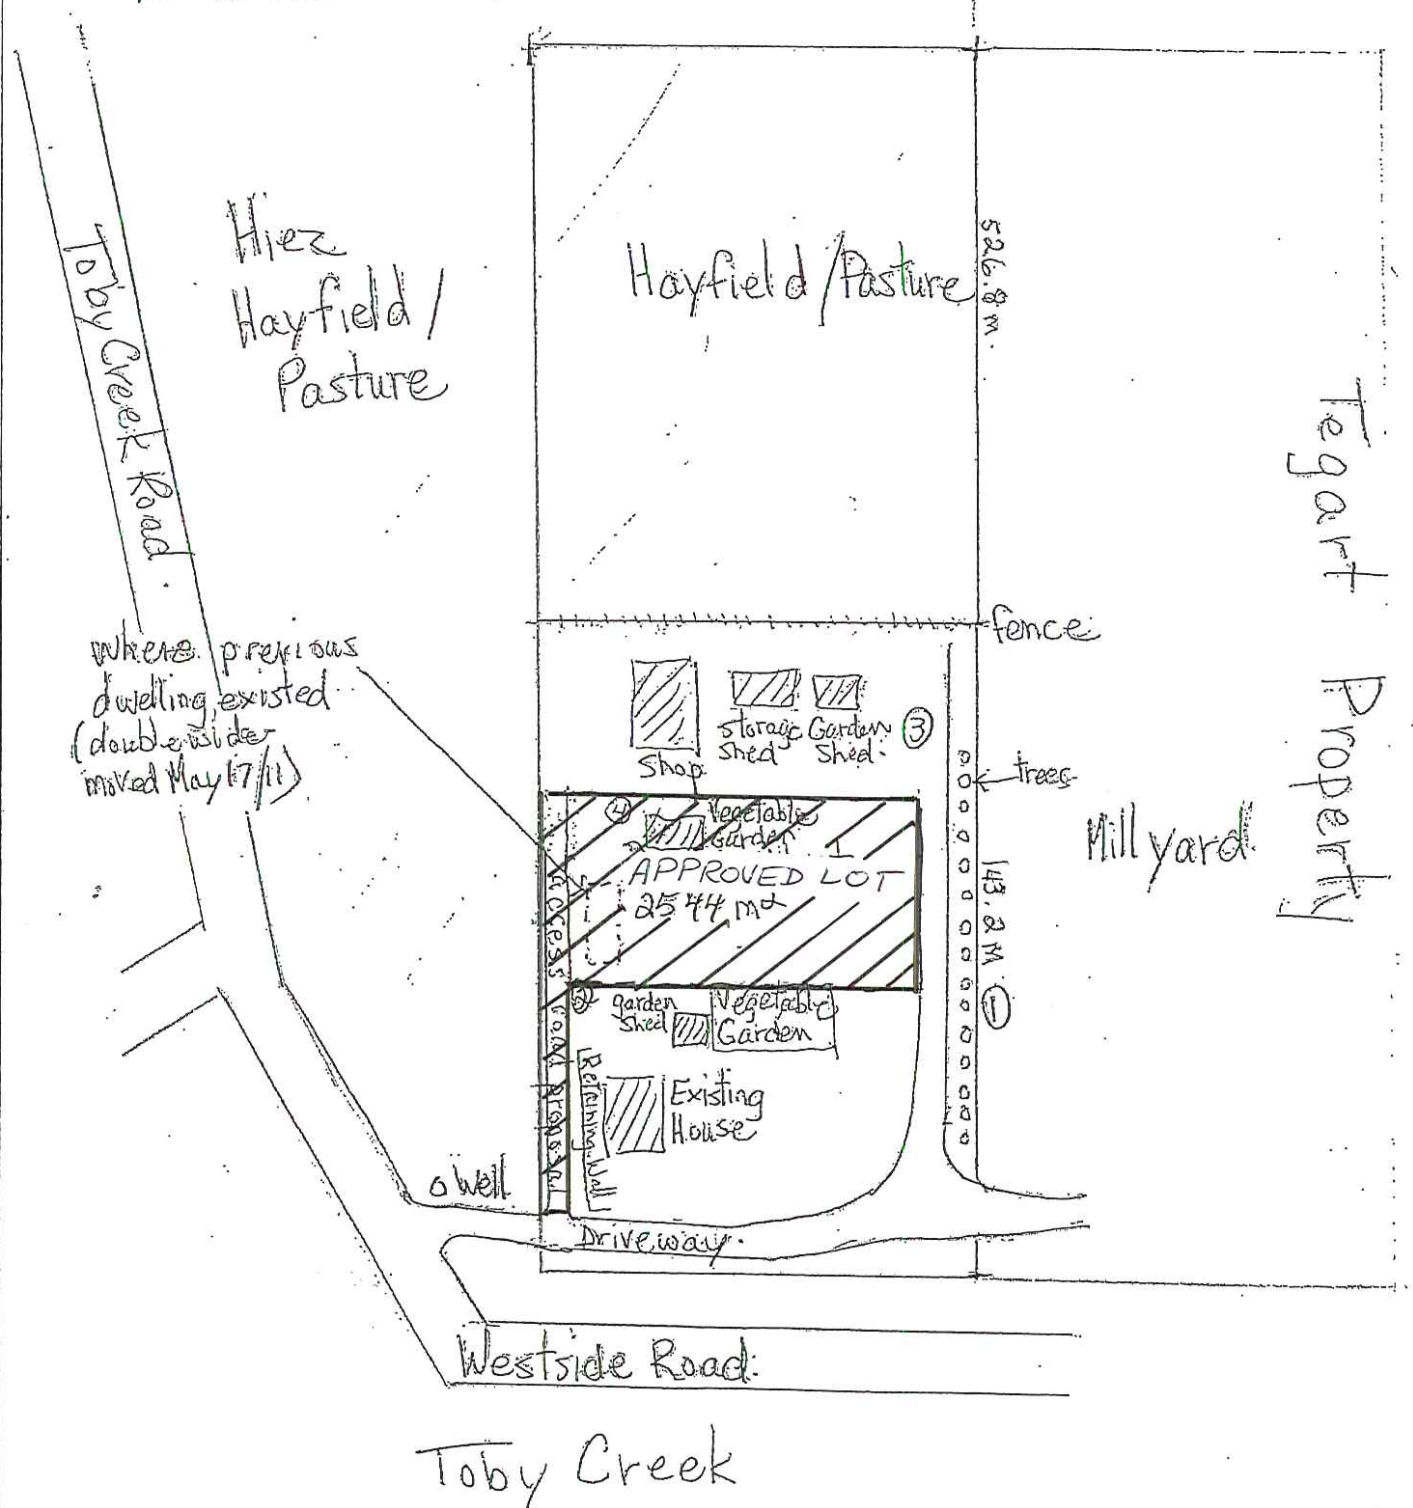 Toby Creek Road.
Hiez
Hayfield/
Pasture
Hayfield/Pasture
526.8 m.
Tegart Property
fence
where previous
dwelling existed
(double wide
moved May 17/11)
Shop
Storage
Shed
Garden
Shed.
3
trees
Millyard
143.2 M
1
4
Vegetable
Garden
APPROVED LOT
2544 m²
access road proposal
2
garden
shed
Vegetable
Garden
Retaining Wall
Existing
House
Well
Driveway.
Westside Road.
Toby Creek